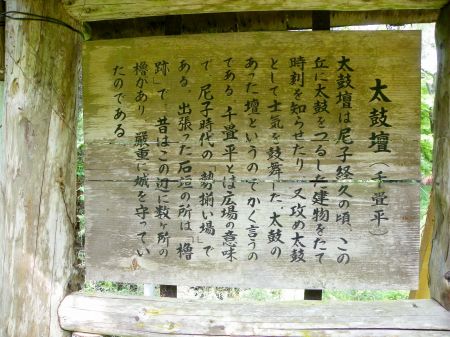 太鼓壇（千畳平）
太鼓壇は尼子経久の頃、この
丘に太鼓をつるした建物をたて
時刻を知らせたり、又攻め太鼓
として士気を鼓舞した。太鼓の
あった壇というのでかく言うの
である。千畳平とは広場の意味
で、尼子時代の「勢揃い場」で
ある。出張った石垣の所は「櫓
跡」で、昔はこの辺に数ヶ所の
櫓があり、厳重に城を守ってい
たのである。